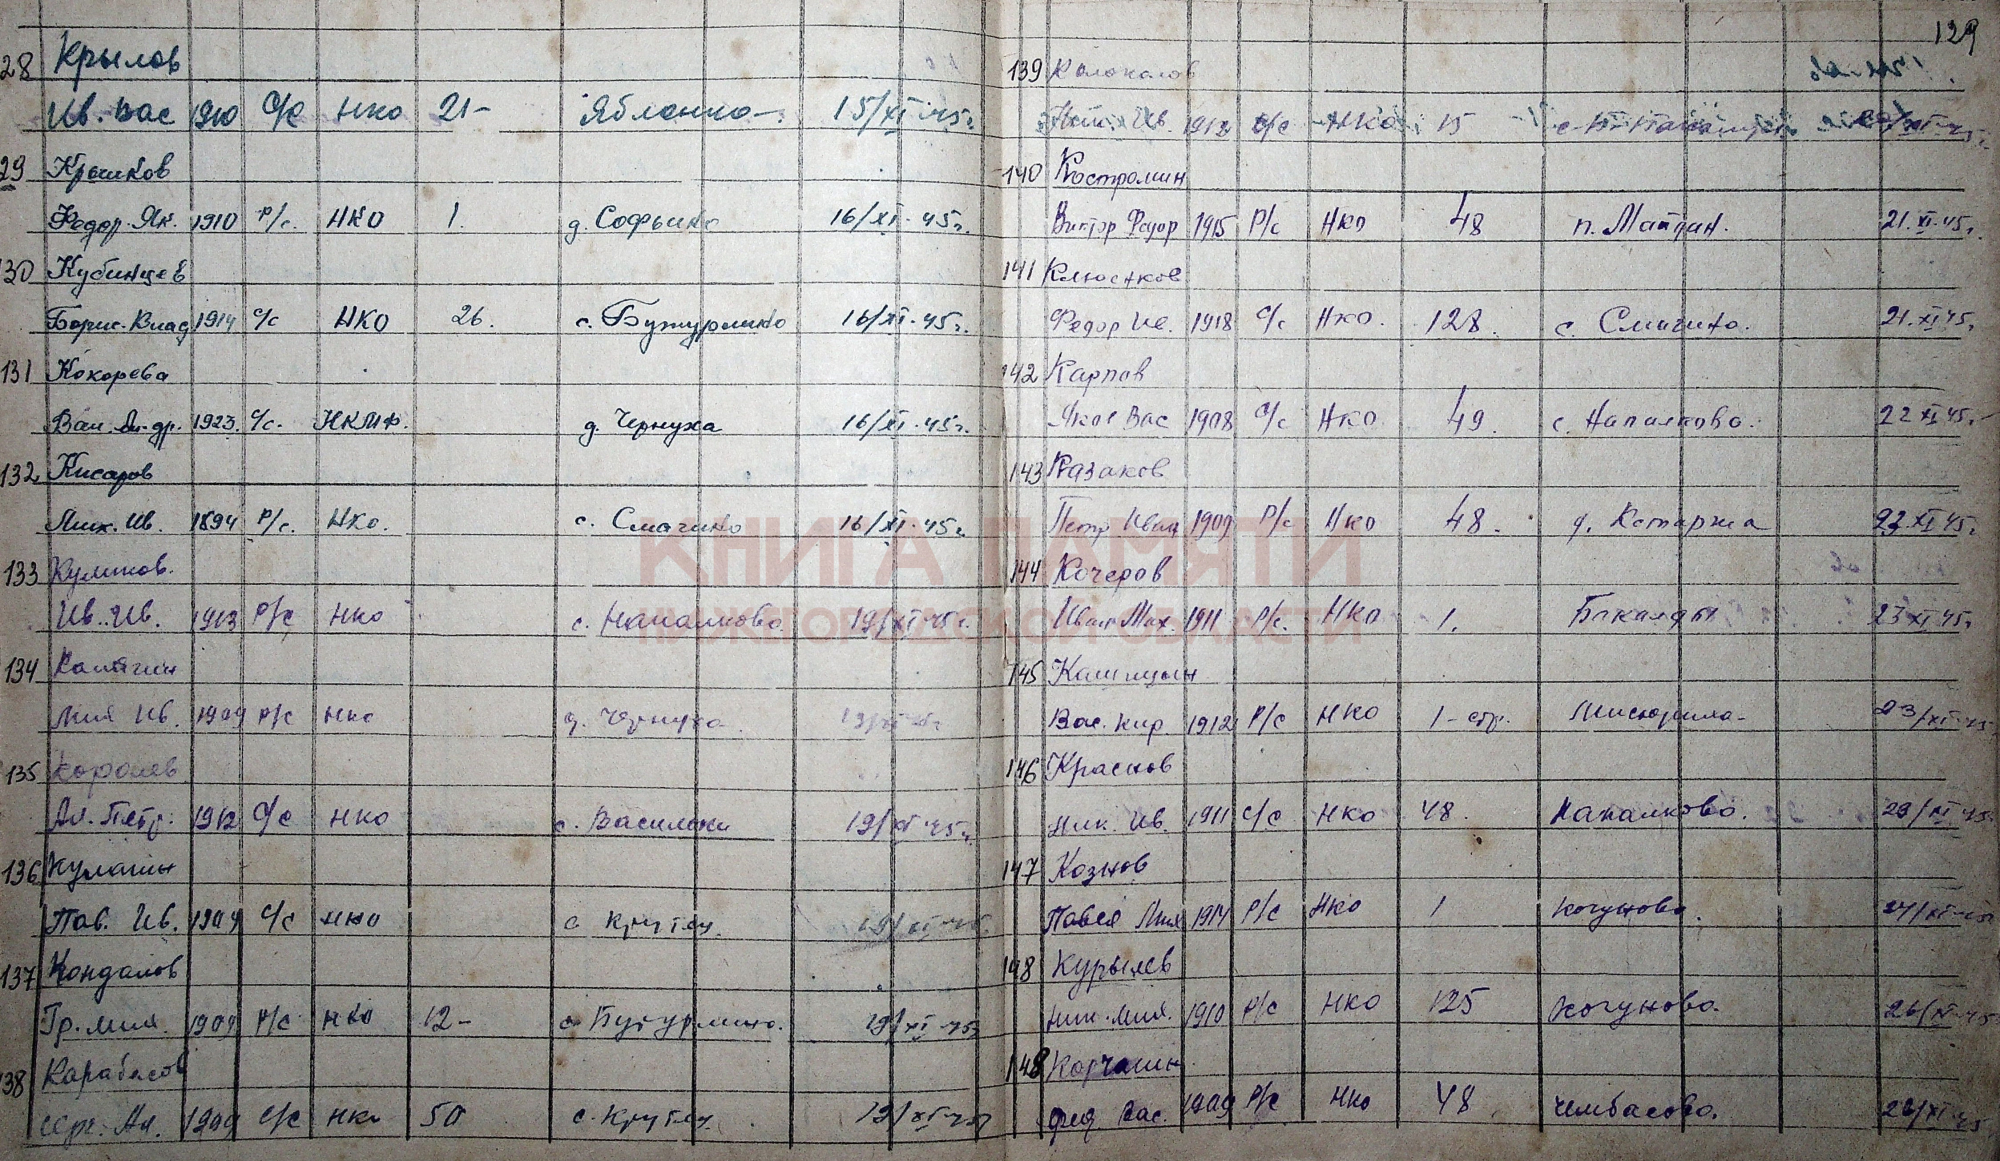 129
28 Крылов
Ив. Вас 1910 С/с НКО 21- Яблонка 15/XI-45г.
29 Крылков
Федор. Як. 1910 р/с. НКО 1. д. Софьино 16/XI-45г.
130 Кубинцев
Борис. Влад 1914 с/с НКО 26. с. Бутурлино 16/XI-45г.
131 Кокорева
Вал. Ан-др. 1923. с/с. НКМФ. д. Чернуха 16/XI-45г.
132 Кисаров
Мих. Ив. 1894 р/с. НКО. с. Смагино 16/XI-45г.
133 Куликов.
Ив. Ив. 1913 р/с НКО с. Напалково 19/XI-45г.
134
Мих Ив. 1909 р/с НКО д. Чернуха 19/XI-45г
135 Королев
Ал. Петр. 1912 с/с НКО с. Василёвки 19/XI-45г.
136 Кулагин
Пав. Ив. 1909 с/с НКО с Крутец. 19/XI-45
137 Кондалов
Гр. Мих. 1909 р/с НКО 12- с Бутурлино. 19/XI-45г
138 Карабасов
Серг. Ал. 1909 с/с НКО 50 с. Крутец 19/XI-45
139 Колокалов
Ник. Ив. 1912 с/с НКО 15
140 Костромин
Виктор Федор 1915 р/с НКО 48 п. Майдан. 21.XI-45г.
141
Федор Ив. 1918 с/с НКО. 128. с. Смагино. 21.XI 45г.
142 Карпов
Яков Вас 1908 с/с НКО 49. с. Напалково. 22 XI 45г.
143 Казаков
Петр Иван 1909 р/с НКО 48. д. Кетаржа 23 XI 45г.
144 Кочеров
Иван Мих. 1911 р/с. НКО 1. Бакалды 23 XI 45г.
145 Капицын
Вас. Кир. 1912 р/с НКО 1-стр. Мисюриха- 23/XI-45
146 Краснов
Ник. Ив. 1911 с/с НКО 48. Напалково. 23/XI 45
147 Козлов
Павел Мих 1914 р/с НКО 1 Когуново. 24/XI-45
148 Курылев
Ник. Мих. 1910 р/с НКО 125 Когуново. 26/XI-45
148 Корчагин
Фед Вас. 1909 р/с НКО 48 Чембасово. 26/XI-45
КНИГА ПАМЯТИ
НИЖЕГОРОДСКОЙ ОБЛАСТИ